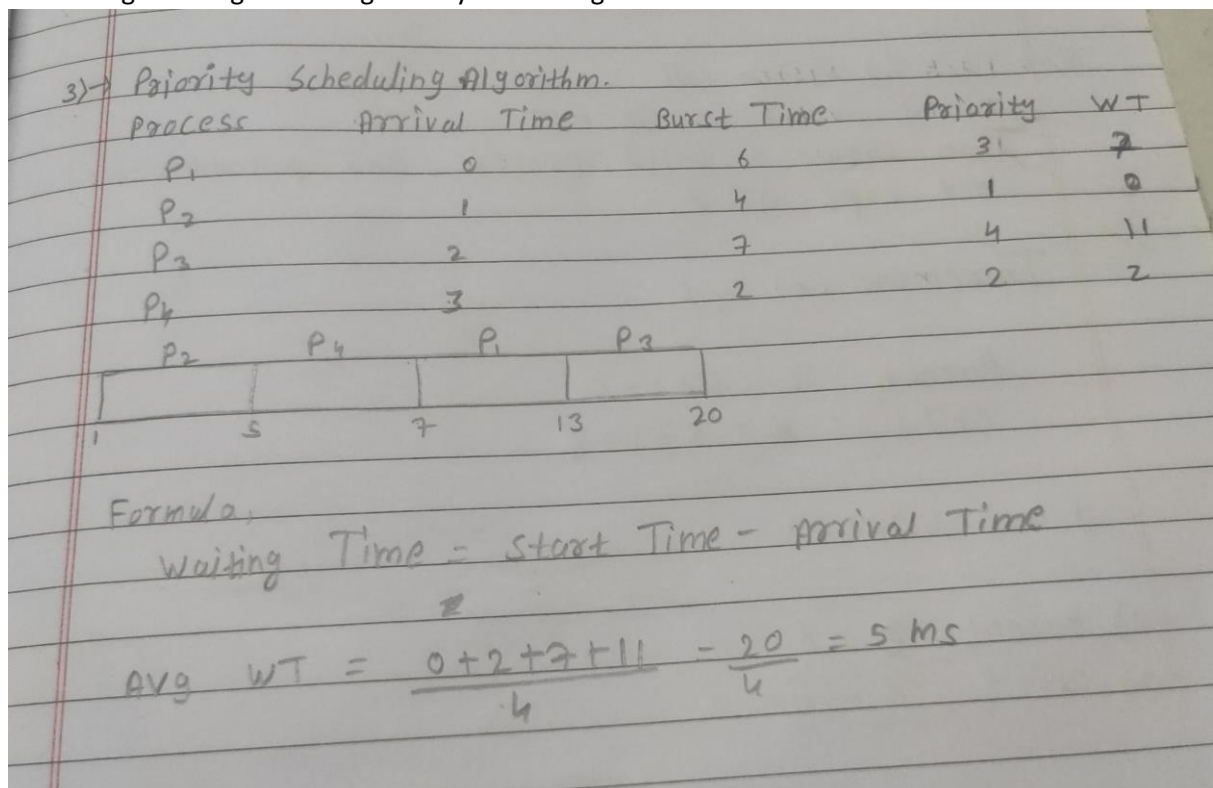 3)→ Priority Scheduling Algorithm.
Process Arrival Time Burst Time Priority WT
P1 0 6 3 7
P2 1 4 1 0
P3 2 7 4 11
P4 3 2 2 2
P2 P4 P1 P3
1 5 7 13 20
Formula,
Waiting Time = Start Time - Arrival Time
Avg WT = 0+2+7+11 / 4 = 20 / 4 = 5 ms